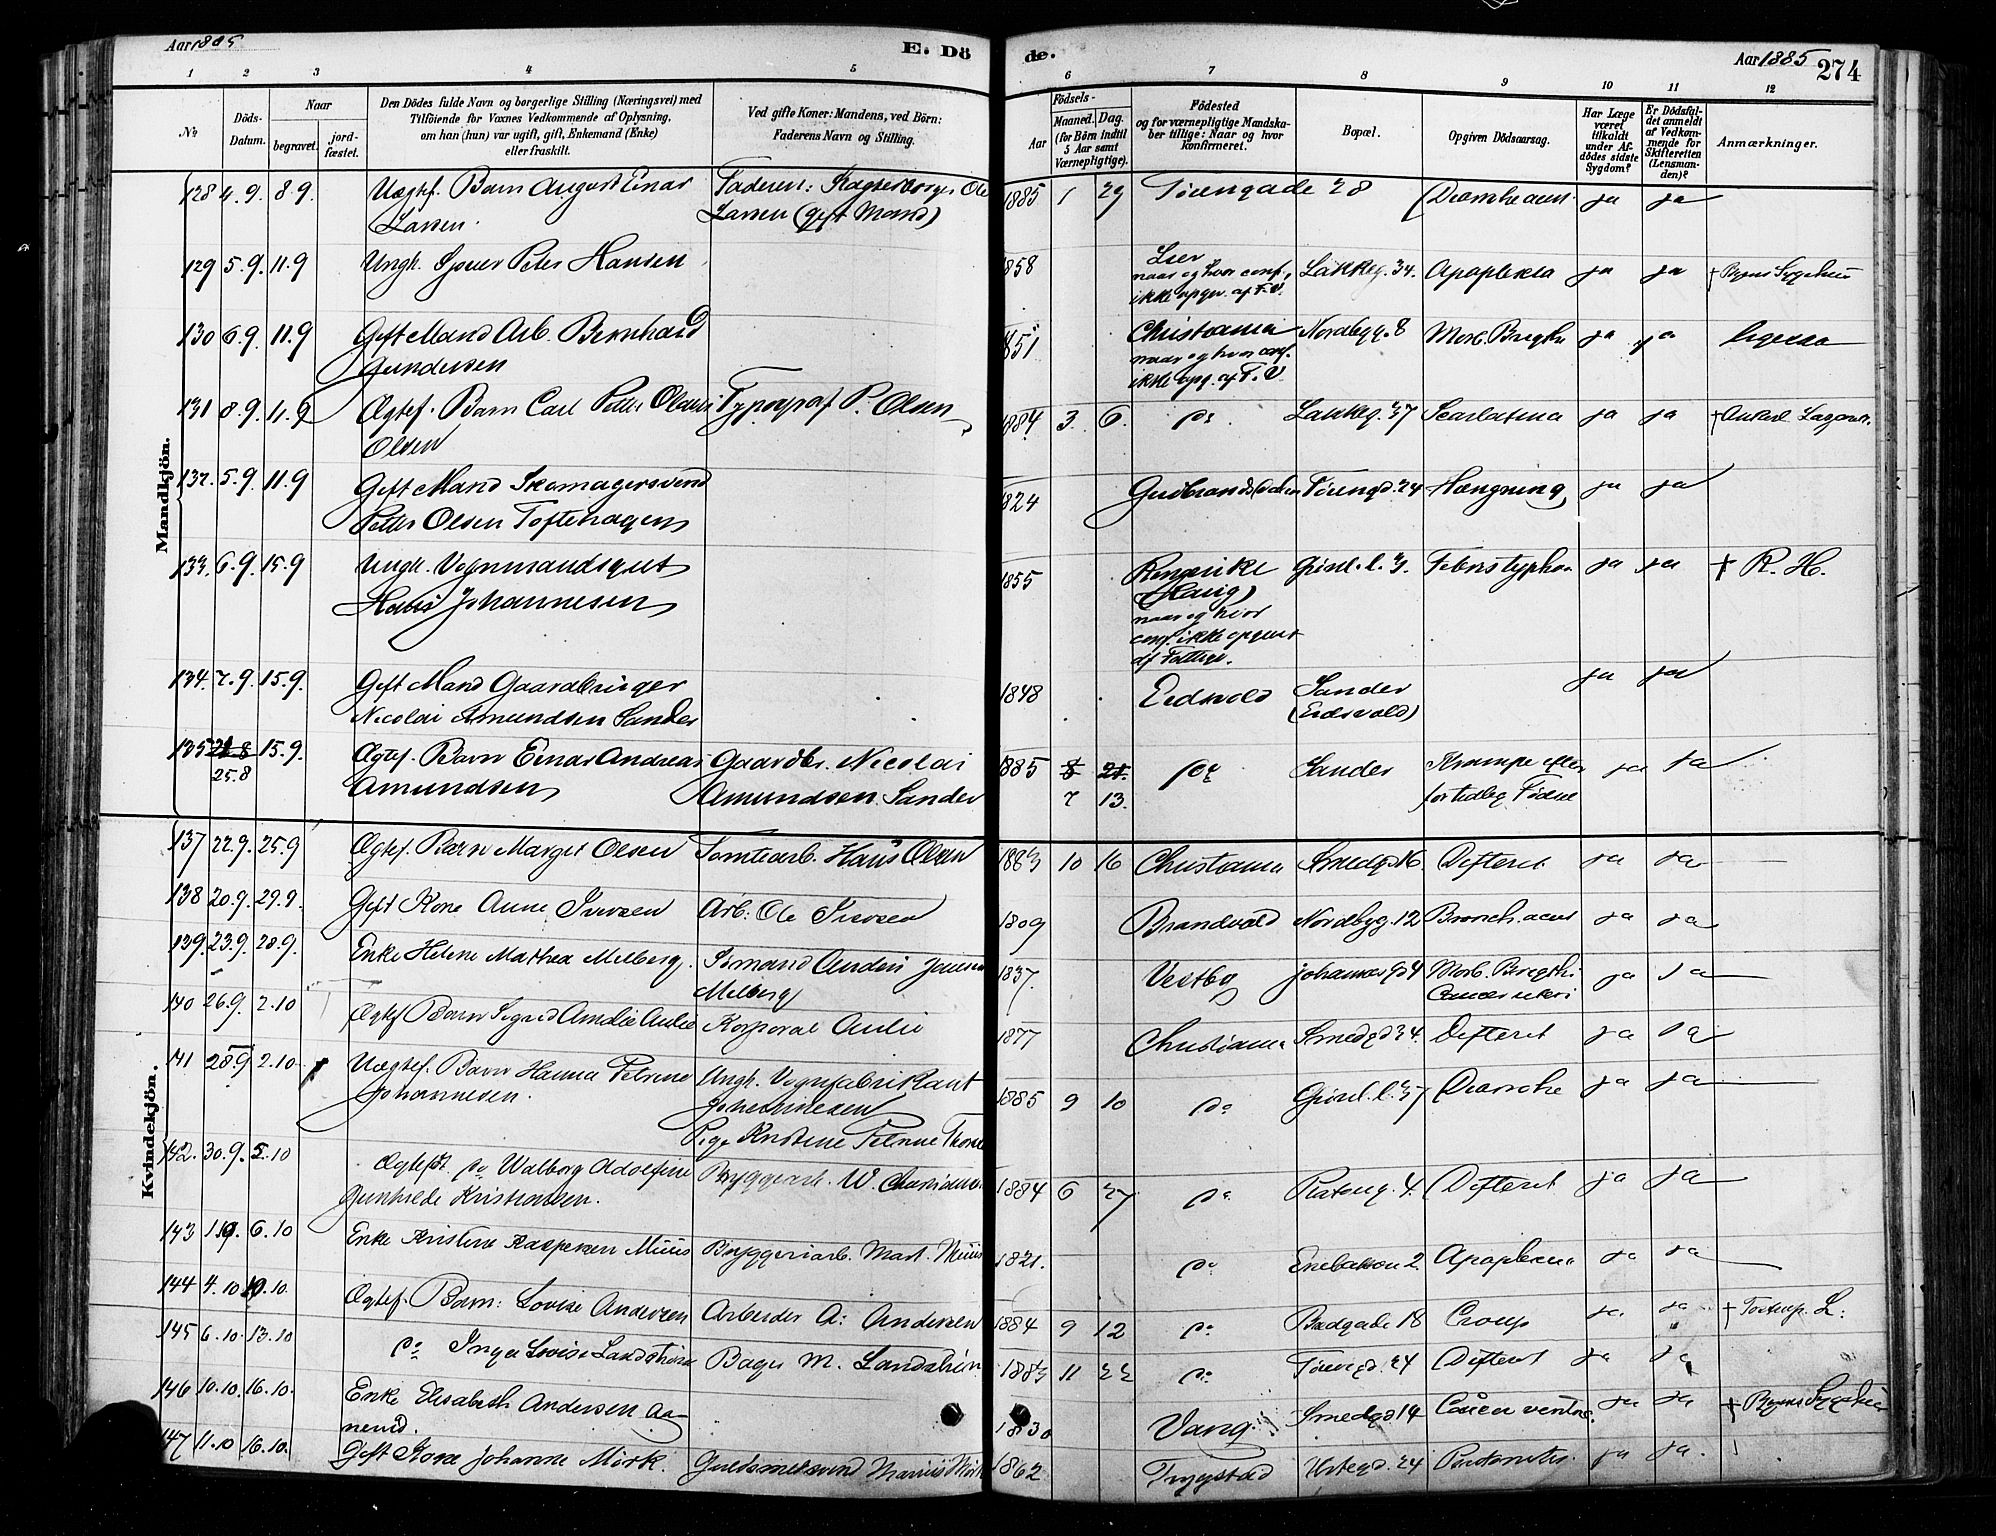 Aar 1885
E. Döde.
Aar 1885
274
1 2 3 4 5 6 7 8 9 10 11 12
No
Döds-Datum.
Naar
begravet.
jord-fæstet.
Den Dödes fulde Navn og borgerlige Stilling (Næringsvei) med
Tilföiende for Voxnes Vedkommende af Oplysning,
om han (hun) var ugift, gift, Enkemand (Enke)
eller fraskilt.
Ved gifte Koner: Mandens, ved Börn:
Faderens Navn og Stilling.
Födsels-
Aar
Maaned.
Dag.
(for Börn indtil
5 Aar samt
Værnepligtige).
Födested
og for værnepligtige Mandska-
ber tillige: Naar og hvor
konfirmeret.
Bopæl.
Opgiven Dödsaarsag.
Har Læge
været
tilkaldt
under Af-
dödes sidste
Sygdom?
Er Dödsfal-
det anmeldt
af Vedkom-
mende for
Skifteretten
(Lensman-
den)?
Anmærkninger.
Mandkjön.
128 4.9. 8.9. Uægtef. Barn August Einar Faderen: Ole 1885 1 29 Töiengade 28 ja ja
Larsen. Larsen (gift Mand)
129 5.9. 11.9 Ungk. Sjouer Peter Hansen 1858 Lier Lakkeg. 34. Apoplexia ja ja † Byens Sygehus
naar og hvor conf.
ikke opgiv. af F.V.
130 6.9. 11.9 Gift Mand Arb. Bernhard 1851 Christiania Nordbyg. 8 Morb. Brigthi ja ja ligesaa
Gundersen naar og hvor conf.
ikke opg. af F.V.
131 8.9. 11.9 Ægtef. Barn Carl Petter Olaus Typograf P. Olsen 1884 3. 6. do. Lakkeg. 37 Scarlatina ja ja † Ankerl. Lazaret.
Olsen
132. 5.9. 11.9 Gift Mand Skomagersvend 1824 Gudbrandsdalen Töiengd. 24 Hængning ja ja
Petter Olsen Toftehagen
133. 6.9. 15.9 Ungk. Vognmandsgut 1855 Ringerike Grönl. l. 3. Febris typhoi ja ja † R. H.
Hans Johannesen (Haug)
naar og hvor
conf. ikke opgivet
134. 7.9. 15.9. Gift Mand Gaardbruger 1848 Eidsvold Sander ja ja
Nicolai Amundsen Sander (Eidsvold)
135 25.8 15.9. Ægtef. Barn Einar Andreas Gaardbr. Nicolai 1885 8 21. do Sander Krampe efter ja ja
Amundsen Amundsen Sander 7 13. for tidlig Födsel
Kvindekjön.
137 22.9. 25.9 Ægtef. Barn Margit Olsen Tomtearb. Hans Olsen 1883 10 16 Christiania Smedgd 16. Difterit ja ja
138 20.9. 29.9. Gift Kone Anne Iversen Arb: Ole Iversen 1809 Brandvold Nordbyg. 12 Bronch. acut ja ja
139. 23.9. 28.9. Enke Helene Mathea Melberg. Anders Jansen 1837. Vestby Johannesgd 4 Morb. Brigthi ja ja
Melberg
140 26.9. 2.10 Ægtef Barn Sigrid Amalie Aulie Korporal Aulie 1877 Christiania Smedgd 34. Difterit ja ja
141 28.9 2.10 Uægtef. Barn Hanna Petrine Ungk. Vognfabrikant 1885 9 10 do Grönl. l. 37 Diarrohe ja ja
Johannesen. Johannesen
Pige Kristine Petrine Thorse
142. 30.9. 5.10 Ægtef. do Walborg Adolfine Byggearb. W. 1884 6 27 do Platoug. 4. Difterit ja ja
Gunhilde Kristiansen.
143 6.10 Enke Kristine Kaspersen Muus Bryggeriarb. Mart. Muus 1821. do Enebakvei 2 Apoplexia ja ja
144 4.10 10.10 Ægtef. Barn: Lovise Andersen Arbeider A: Andersen 1884 9 12 do Badgade 18 Croup ja. ja † Tostrup. L:
145 6.10. 13.10 do Inga Lovise Landström Bager M. Landström 1883 11 22 do Töiengd. 24 Difterit ja ja
146 10.10. 16.10. Enke Elisabeth Andersen Aa- 1830 Vang. Smedgd 14 Cancer ventric. ja ja † Byens Sygehus
nerud.
147 11.10 16.10. Gift Kone Johanne Mörk. Guldsmedsvend Marius Mörk 1862 Trygstad Urtegd. 24 Peritonitis. ja ja.